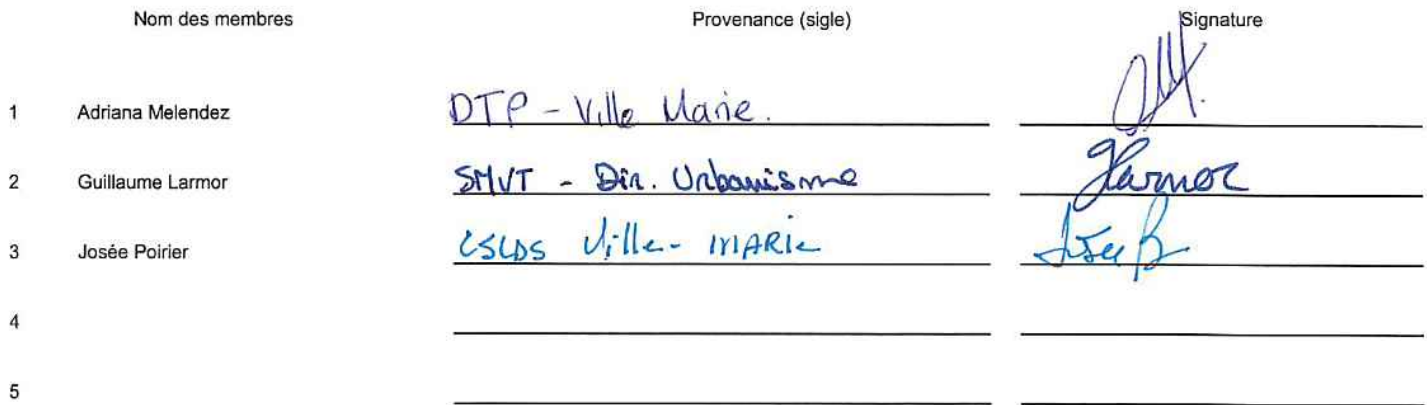 Nom des membres Provenance (sigle) Signature
1 Adriana Melendez DTP - Ville Marie.
2 Guillaume Larmor SMVT - Dir. Urbanisme Larmor
3 Josée Poirier Ville-MARie Josée
4
5